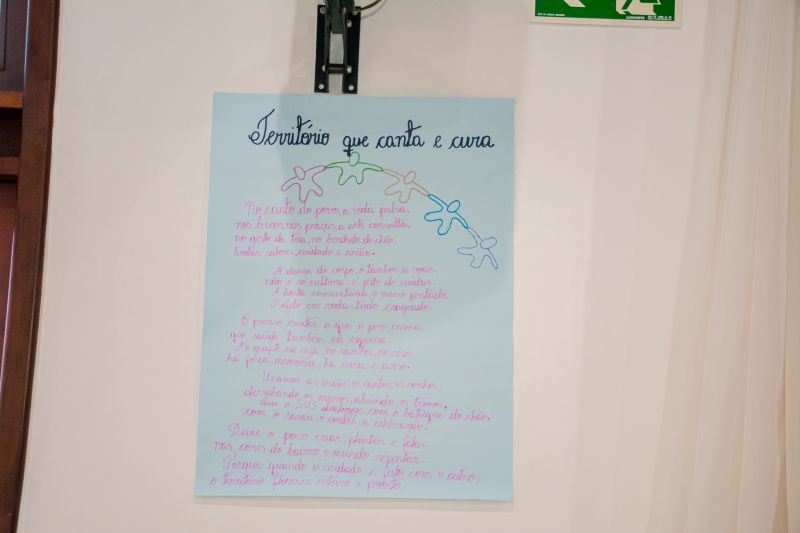 Território que canta e cura
No canto do povo, a vida pulsa,
nos becos, nas praças, a arte consulta.
no gesto da tia, no bordado do chão.
brotar sabor, cuidado e união.
A dança do corpo, o tambor a voar.
não é só cultura: é jeito de cuidar.
A horta comunitária, o muro pintado.
O afeto em roda - tudo é sagrado.
É preciso escutar o que o povo ensina,
que saúde também na esquina.
No grafite na laje, no samba, no riso
há força, memória, há cura e aviso.
Unamos as mãos, os cantos, os sonhos,
derrubando os muros, abrindo os tronos.
Que o SUS dialogue com o batuque do chão.
com o sarau, o cordel, a celebração.
Deixe o povo criar, plantar e falar
nas cores do bairro, o mundo
Porque quando o cuidado é feito com o outro,
o território floresce inteiro e pronto.